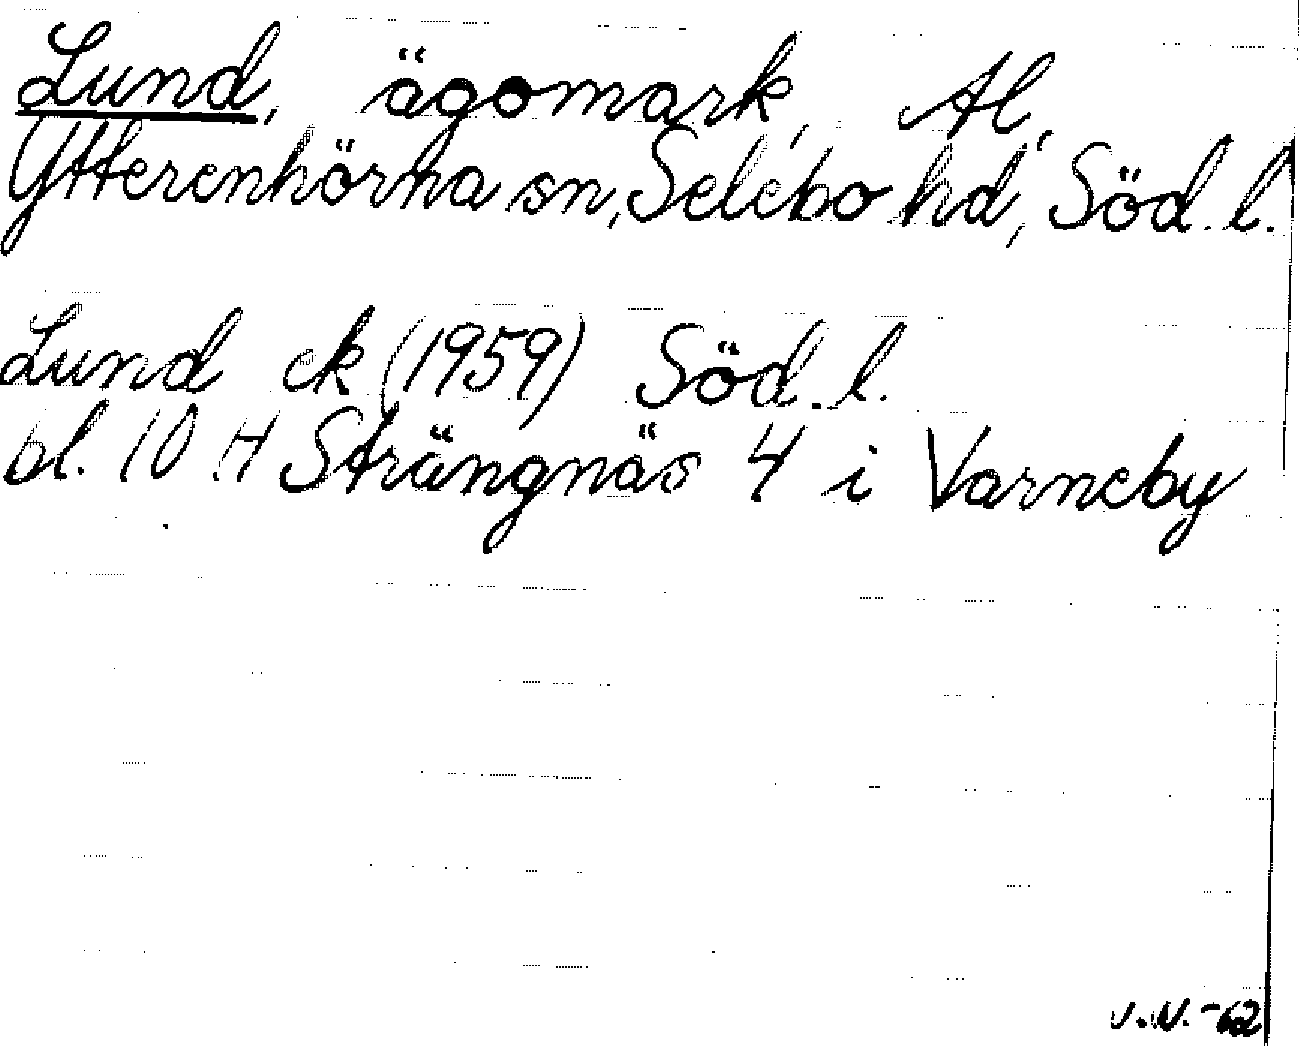 Lund, ägomark, Al,
Ytterenhörna sn, Selebo hd, Söd. l.
Lund ek (1959) Söd. l.
bl. 10 H Strängnäs 4 i Varneby
V.N. -62